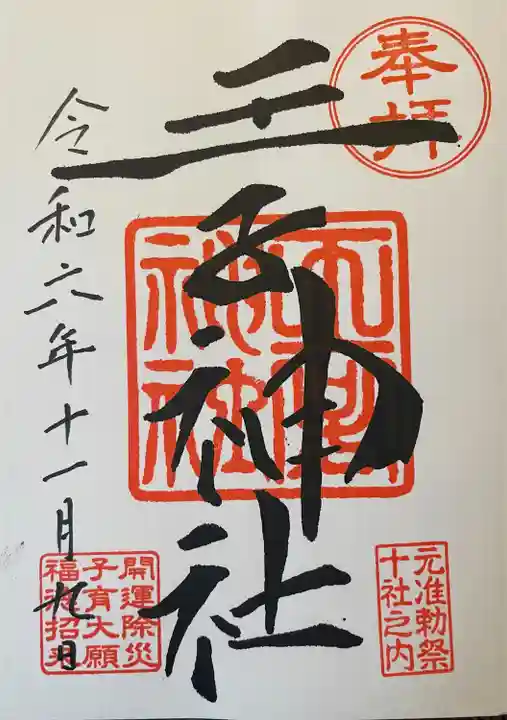 奉拝
王子神社
王子神社
元准勅祭
十社之内
令和六年十一月九日
開運除災
子育大願
福徳招来